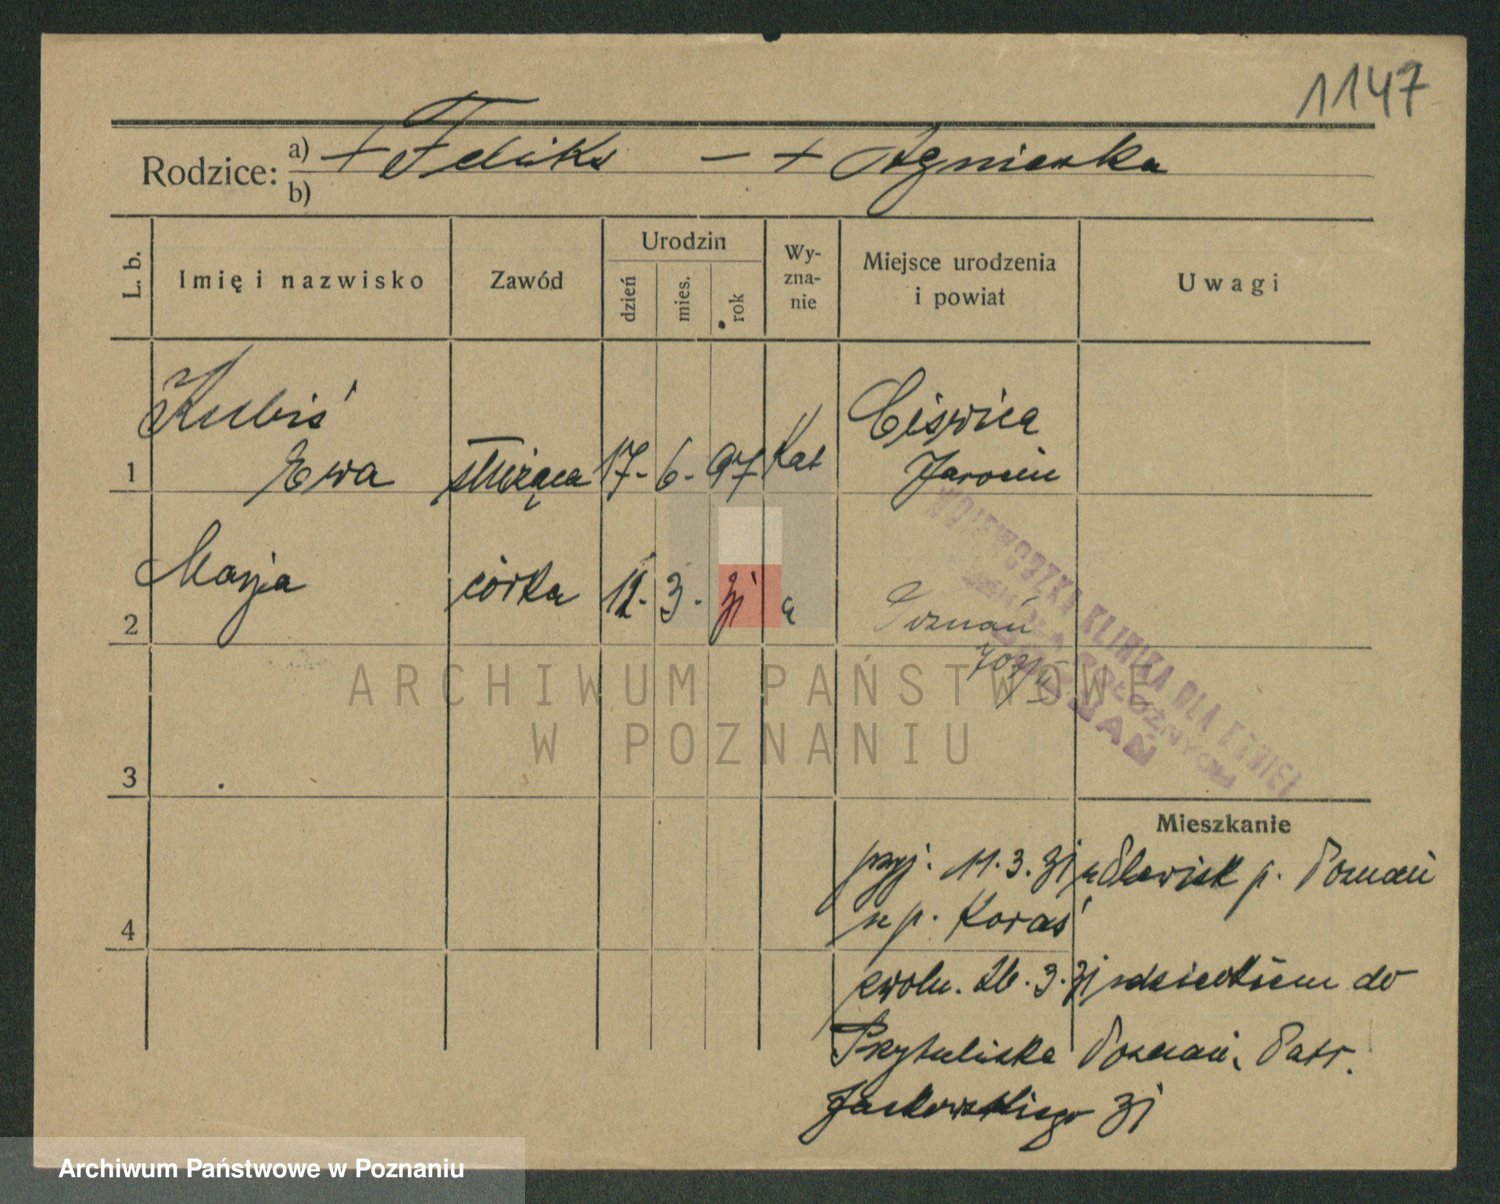 1147
Rodzice: a) + Feliks — + Agnieszka
b)
L. b.
Imię i nazwisko
Zawód
Urodzin
dzień
mies.
rok
Wy-
zna-
nie
Miejsce urodzenia
i powiat
Uwagi
Kubiś
Ewa
1
służąca
17-
6-
97
Kat
Ciświca
Jarocin
2
Marja
córka
3.
31
Poznań
WOJEWÓDZKA KLINIKA DLA KOBIET
POZNAŃ
ARCHIWUM PAŃSTWOWE
W POZNANIU
3
Mieszkanie
przyj. 11.3.31 p. Poznań
4
u p. Koraś
zwoln. 26.3.31 z dzieckiem do
Przytuliska Poznań, Patr.
Jackowskiego 31
Archiwum Państwowe w Poznaniu